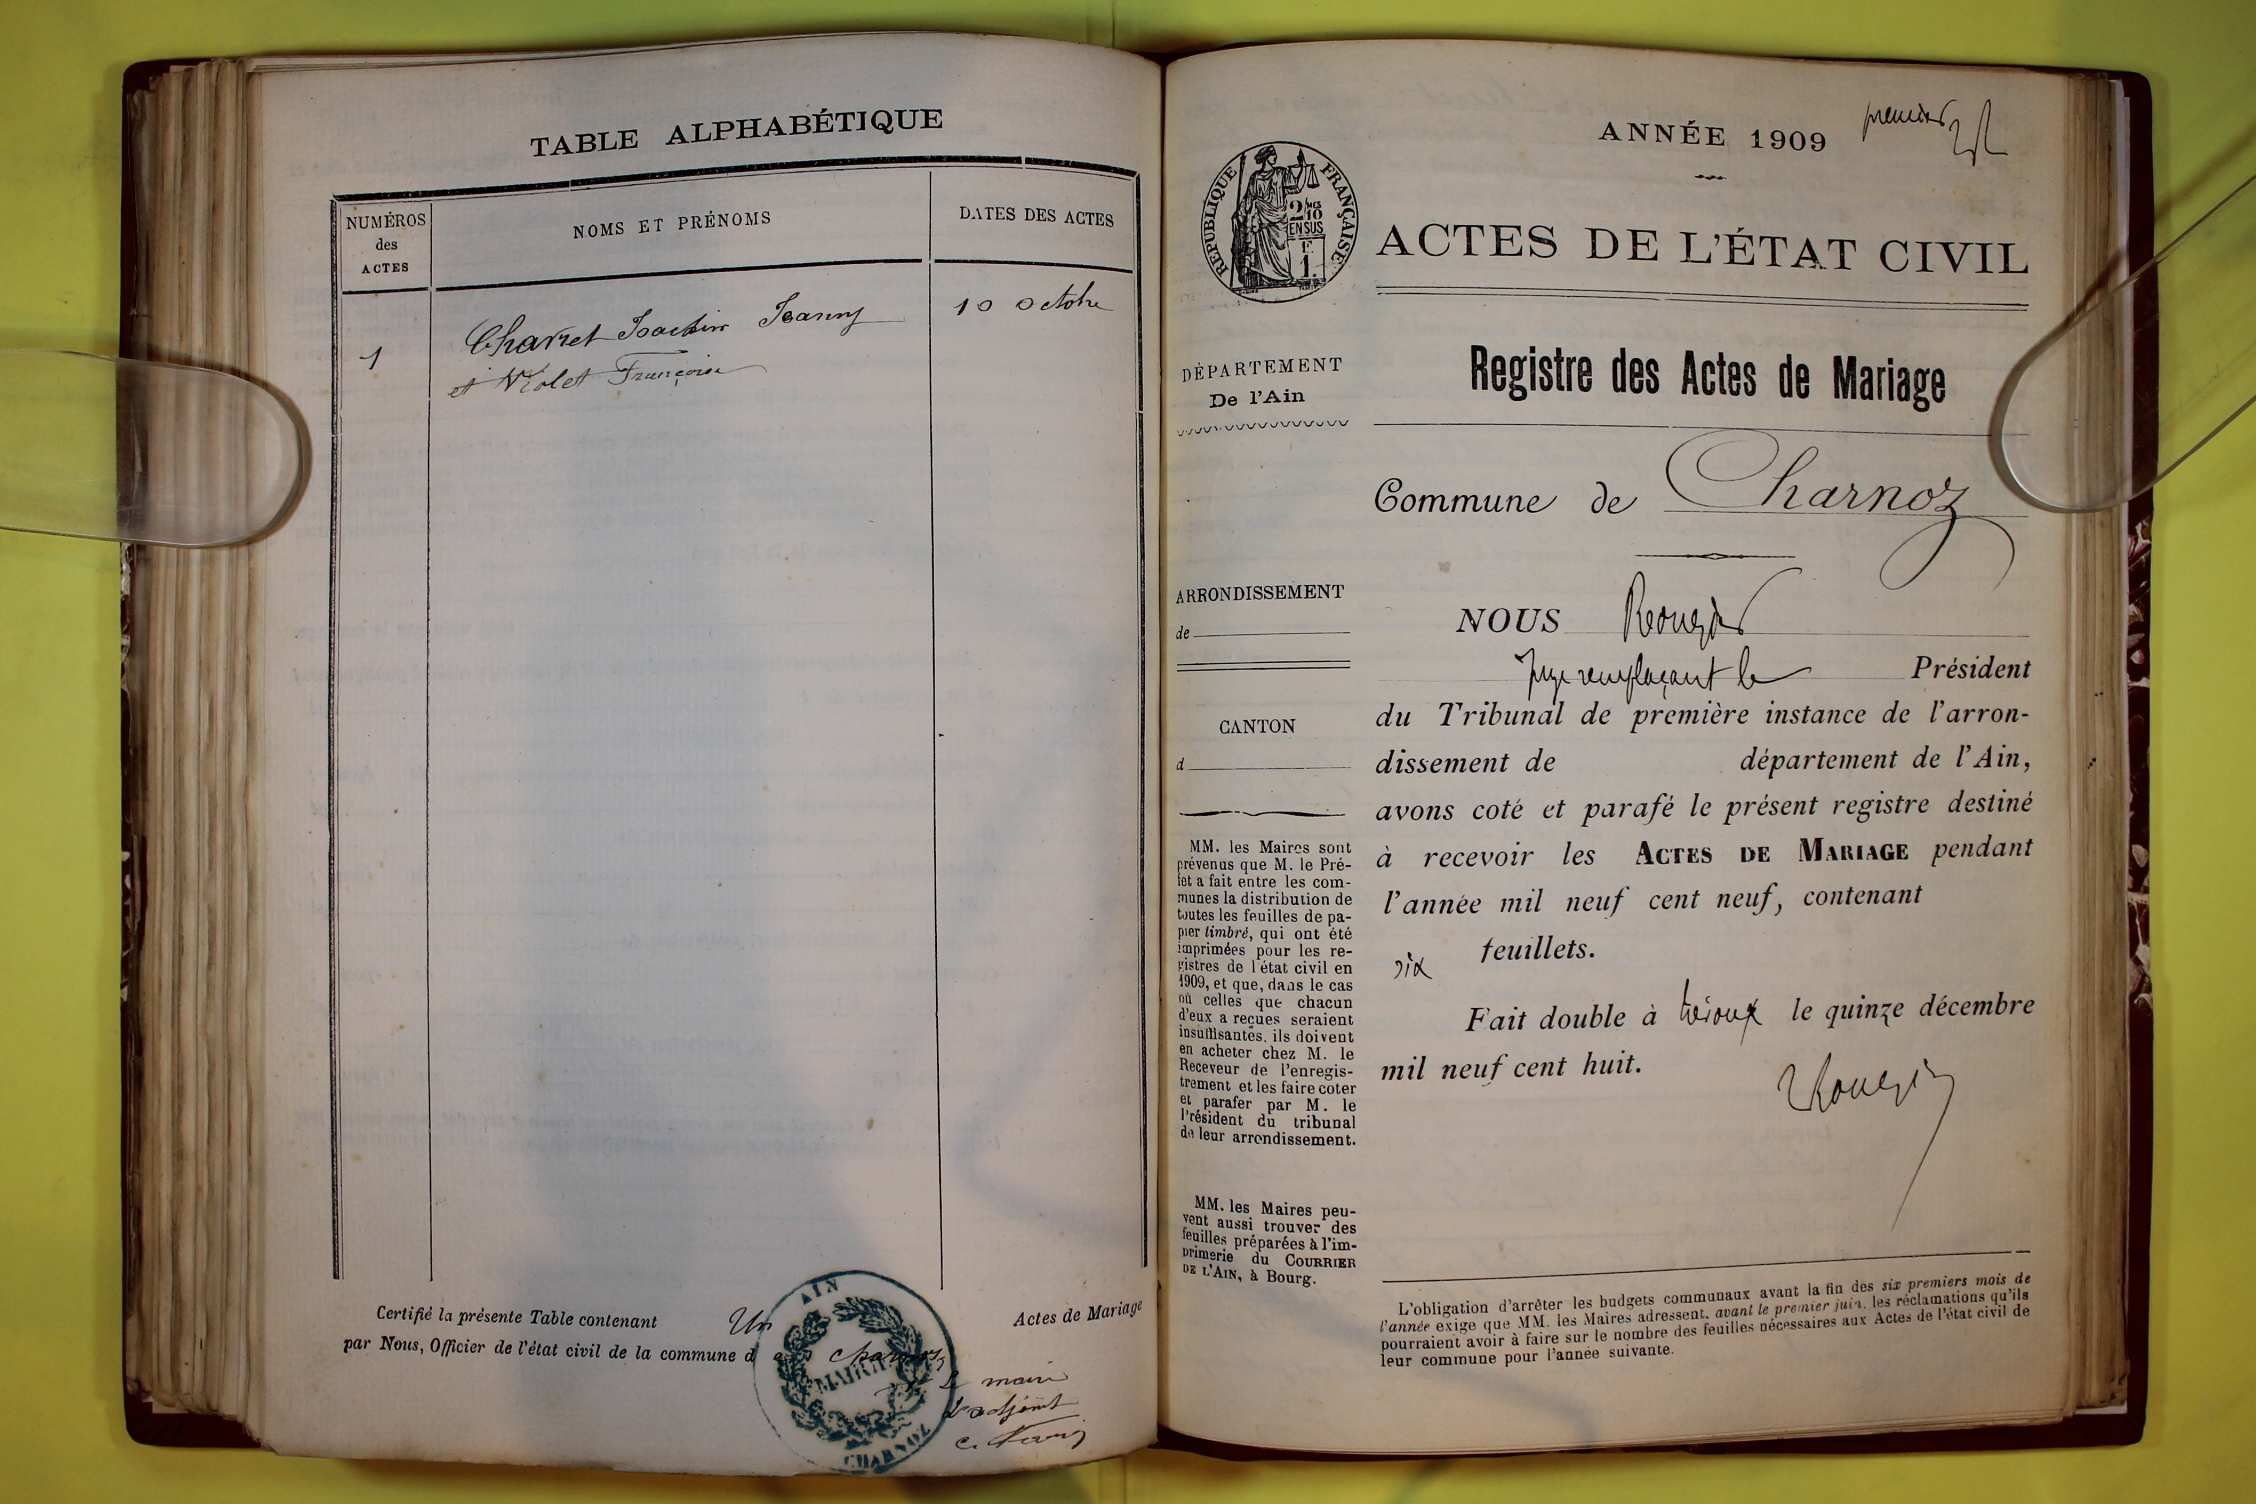 TABLE ALPHABÉTIQUE
NUMÉROS
des
ACTES
NOMS ET PRÉNOMS
DATES DES ACTES
1
Charret Joachim Joanny
et Violet Françoise
10 octobre
Certifié la présente Table contenant Un Actes de Mariage
par Nous, Officier de l'état civil de la commune d
Le maire
L'adjoint
AIN
MAIRIE
CHARNOZ
ANNÉE 1909
premier
RÉPUBLIQUE FRANÇAISE
2/10
EN SUS
ACTES DE L'ÉTAT CIVIL
DÉPARTEMENT
De l'Ain
Registre des Actes de Mariage
Commune de Charnoz
ARRONDISSEMENT
de
CANTON
d
MM. les Maires sont
prévenus que M. le Pré-
fet a fait entre les com-
munes la distribution de
toutes les feuilles de pa-
pier timbré, qui ont été
imprimées pour les re-
gistres de l'état civil en
1909, et que, dans le cas
où celles que chacun
d'eux a reçues seraient
insuffisantes, ils doivent
en acheter chez M. le
Receveur de l'enregis-
trement et les faire coter
et parafer par M. le
Président du tribunal
de leur arrondissement.
MM. les Maires peu-
vent aussi trouver des
feuilles préparées à l'im-
primerie du COURRIER
DE L'AIN, à Bourg.
NOUS
juge remplaçant le Président
du Tribunal de première instance de l'arron-
dissement de département de l'Ain,
avons coté et parafé le présent registre destiné
à recevoir les ACTES DE MARIAGE pendant
l'année mil neuf cent neuf, contenant
six feuillets.
Fait double à Trévoux le quinze décembre
mil neuf cent huit.
L'obligation d'arrêter les budgets communaux avant la fin des six premiers mois de
l'année exige que MM. les Maires adressent, avant le premier juin, les réclamations qu'ils
pourraient avoir à faire sur le nombre des feuilles nécessaires aux Actes de l'état civil de
leur commune pour l'année suivante.